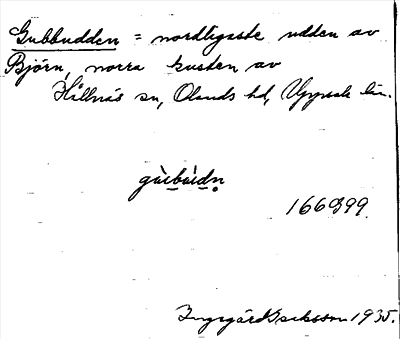 Gubbudden = nordligaste udden av
Björn, norra kusten av
Hållnäs sn, Olands hd, Uppsala län.
gùbùdn
166899.
Ingegärd Eriksson 1935.